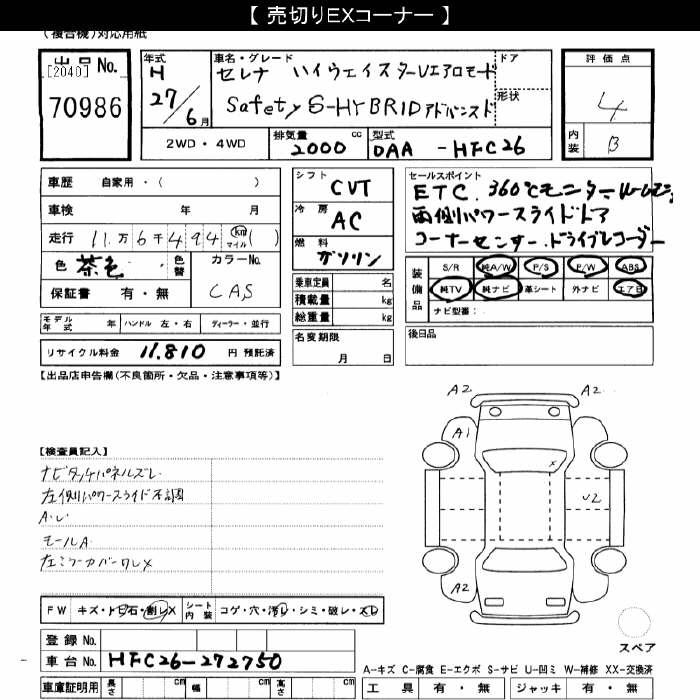 【 売切りEXコーナー 】
(複合機)対応用紙
出品 No.
[2040]
70986
年式
H
27/6月
車名・グレード
セレナ ハイウェイスターVエアロモード
Safety S-HYBRID アドバンスド
ドア
形状
評価点
4
内装
B
2WD・4WD
排気量
2000 cc
型式
DAA - HFC26
車歴 自家用・( )
車検 年 月
走行 11万6千494 km マイル ( )
色 茶色
色替
カラーNo.
CAS
保証書 有・無
シフト
CVT
冷房
AC
燃料
ガソリン
乗車定員 名
積載量 kg
総重量 kg
セールスポイント
ETC. 360°Cモニター
両側パワースライドドア
コーナーセンサー.ドライブレコーダー
装備品
S/R 純A/W P/S P/W ABS
純TV 純ナビ 革シート 外ナビ エアB
ナビ型番:
モデル年式 年 ハンドル 左・右 ディーラー・並行
リサイクル料金 11.810 円 預託済
名変期限
月 日
後日品
【出品店申告欄(不良箇所・欠品・注意事項等)】
【検査員記入】
ナビタッチパネルズレ
左側パワースライド不調
A・レ
モールA
左ミラーカバーワレX
A2 A2
A1
x
U2
A2
スペア
FW キズ・トビ石・割レX
シート内装 コゲ・穴・汚レ・シミ・破レ・スレ
登録 No.
車台 No. HFC26-272750
車庫証明用 長さ cm 幅 cm 高さ cm
A-キズ C-腐食 E-エクボ S-サビ U-凹ミ W-補修 XX-交換済
工具 有・無 ジャッキ 有・無